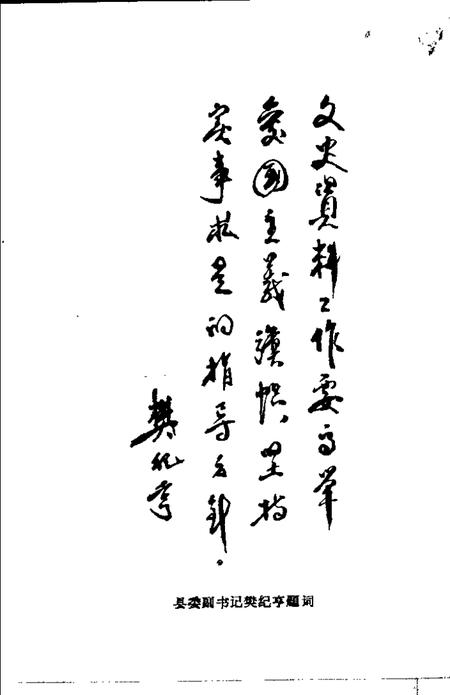 文史資料工作要高举
爱国主義旗帜，坚持
实事求是的指导方针。
樊纪亨
县委副书记樊纪亨题词